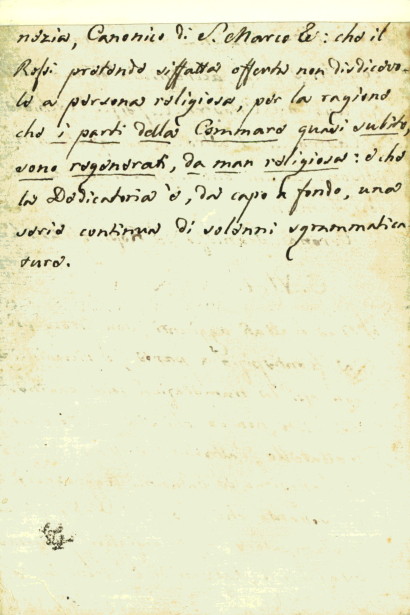 nezia, Canonico di S. Marco &: che il
Rossi pretende siffatta offerta non disdicevo-
le a persona religiosa, per la ragione
che i parti della Commare quasi subito,
sono regenerati, da man religiosa: e che
la Dedicatoria è, da capo a fondo, una
serie continua di solenni sgrammatica-
ture.